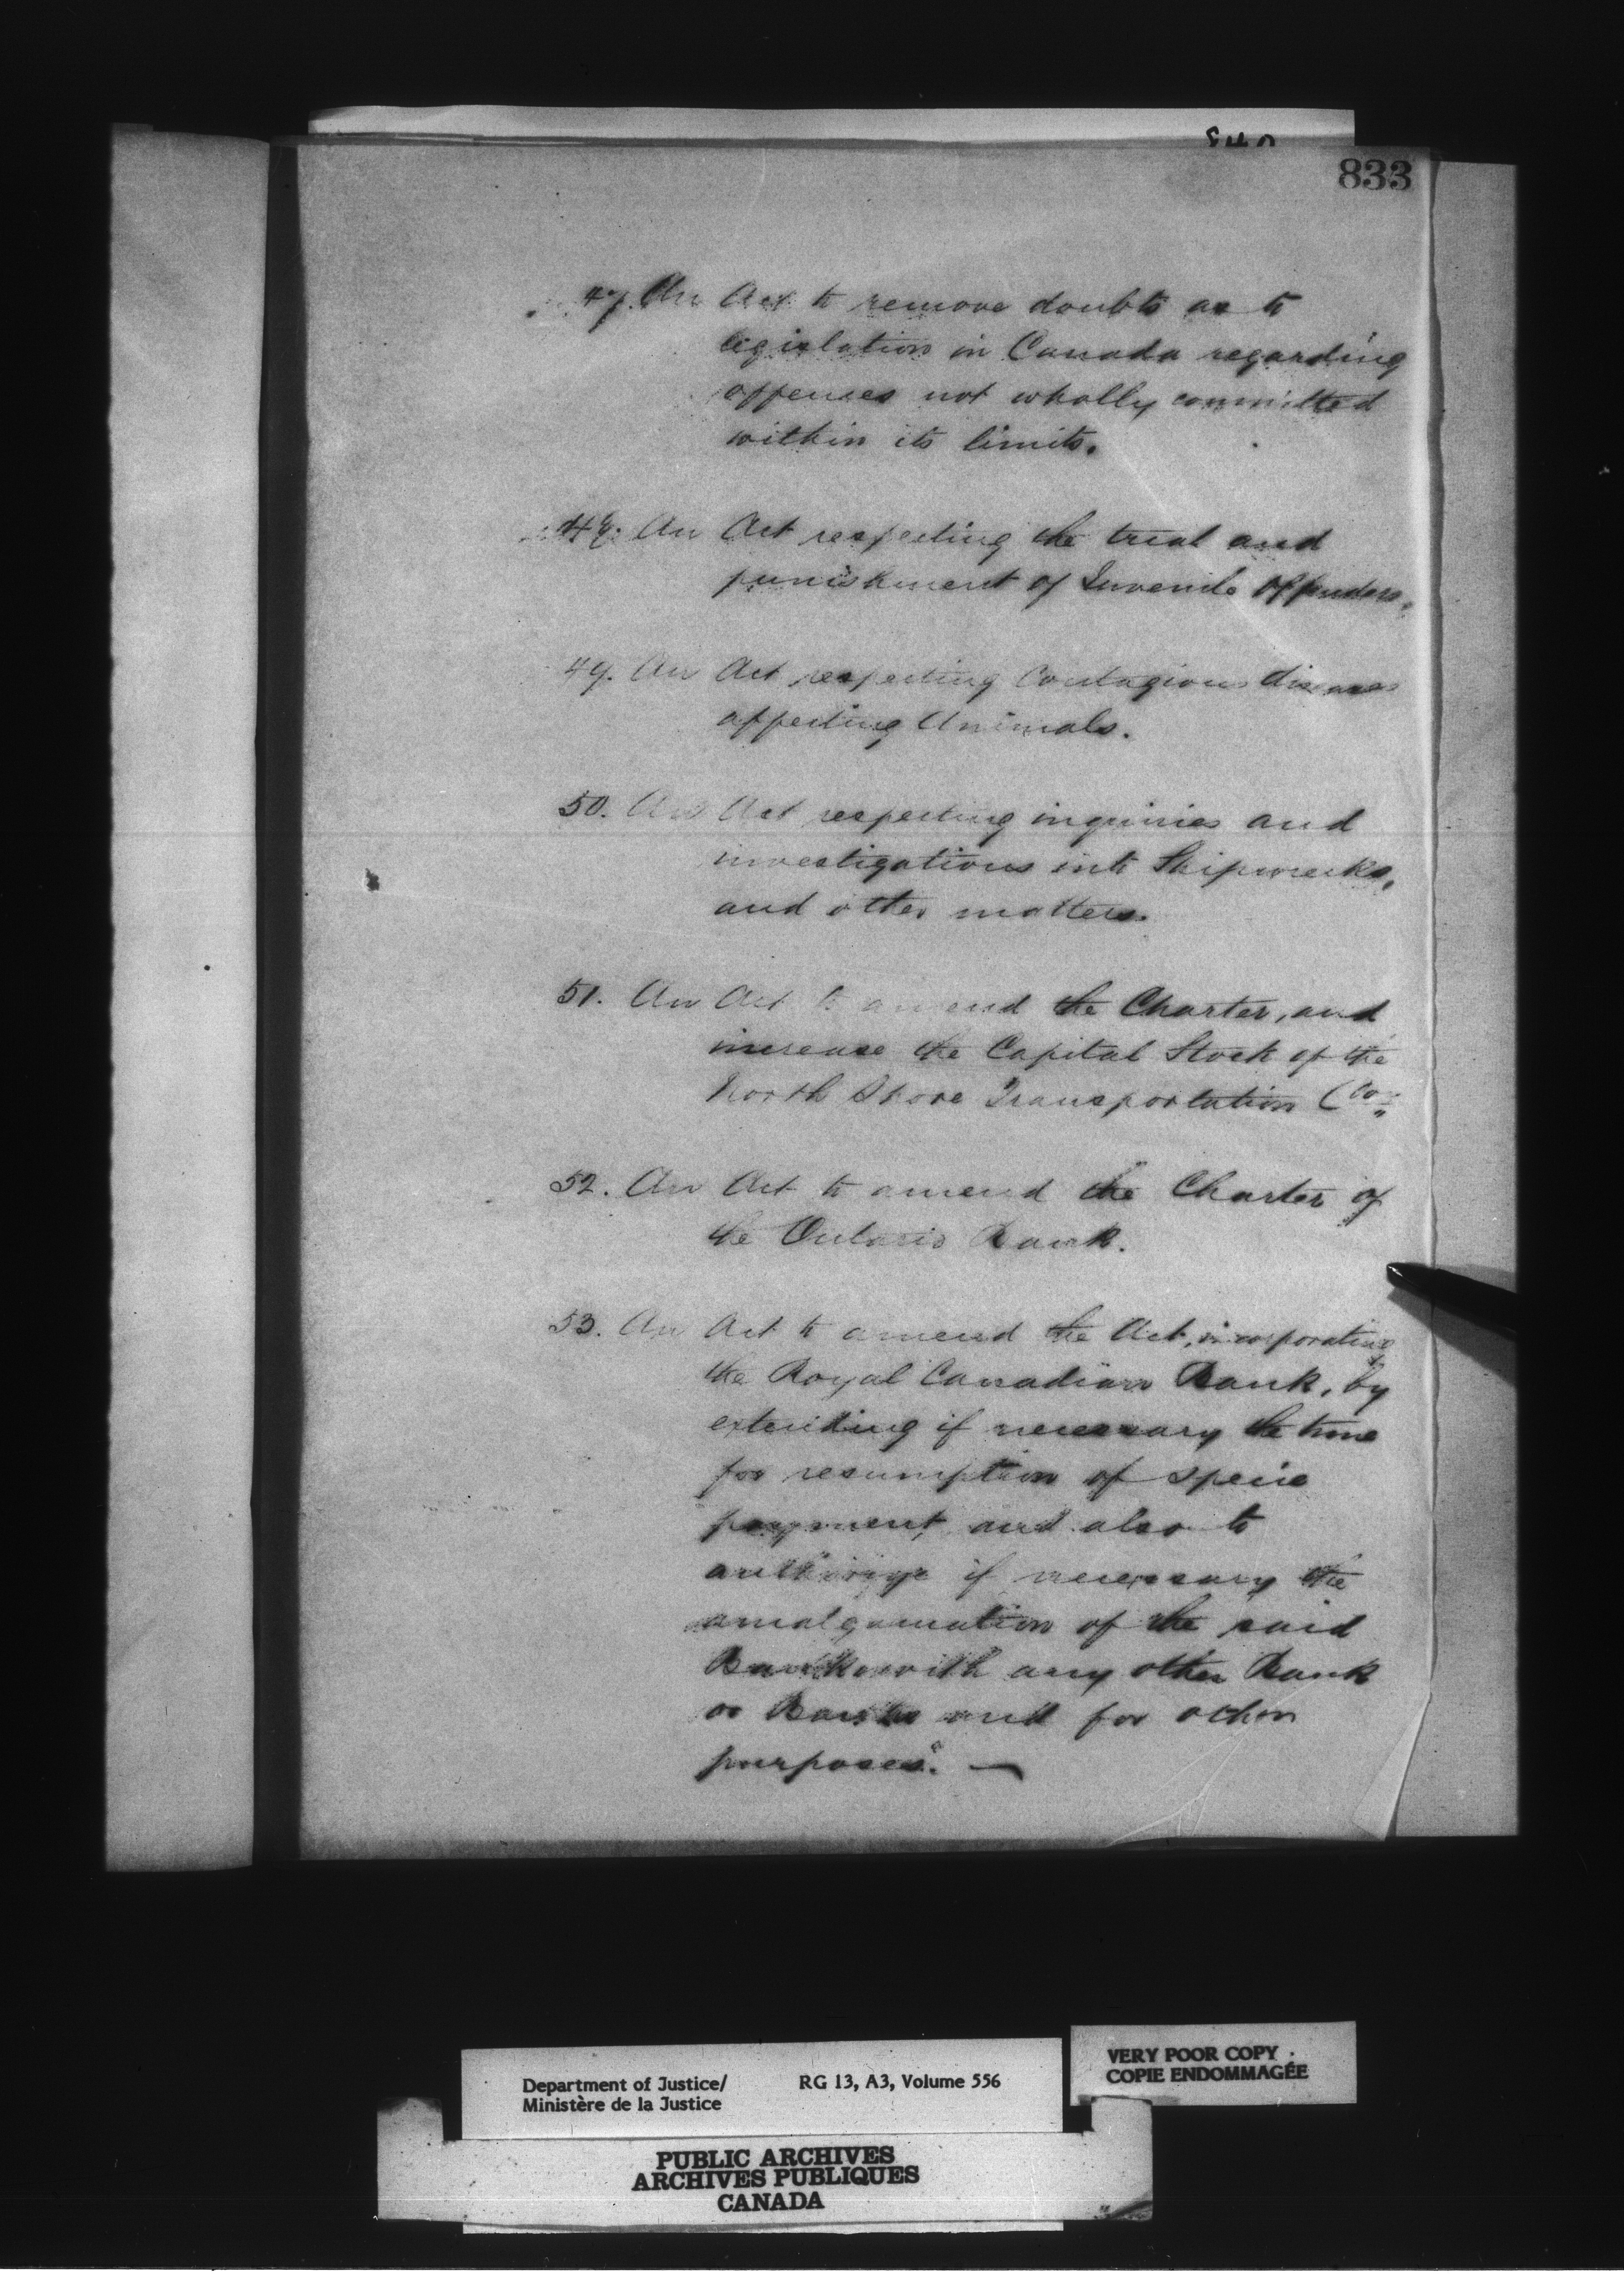 833
47. An Act to remove doubts as to
legislation in Canada regarding
offenses not wholly committed
within its limits.
48. An Act respecting the trial and
punishment of Juvenile Offenders.
49. An Act respecting Contagious diseases
affecting Animals.
50. An Act respecting inquiries and
investigations into Shipwrecks,
and other matters.
51. An Act to amend the Charter, and
increase the Capital Stock of the
North Shore Transportation Co.
52. An Act to amend the Charter of
the Ontario Bank.
53. An Act to amend the Act, incorporating
the Royal Canadian Bank, by
extending if necessary the time
for resumption of specie
payment, and also to
authorize if necessary the
amalgamation of the said
Bank with any other Bank
or Banks and for other
purposes". —
Department of Justice/ RG 13, A3, Volume 556
Ministère de la Justice
VERY POOR COPY
COPIE ENDOMMAGÉE
PUBLIC ARCHIVES
ARCHIVES PUBLIQUES
CANADA